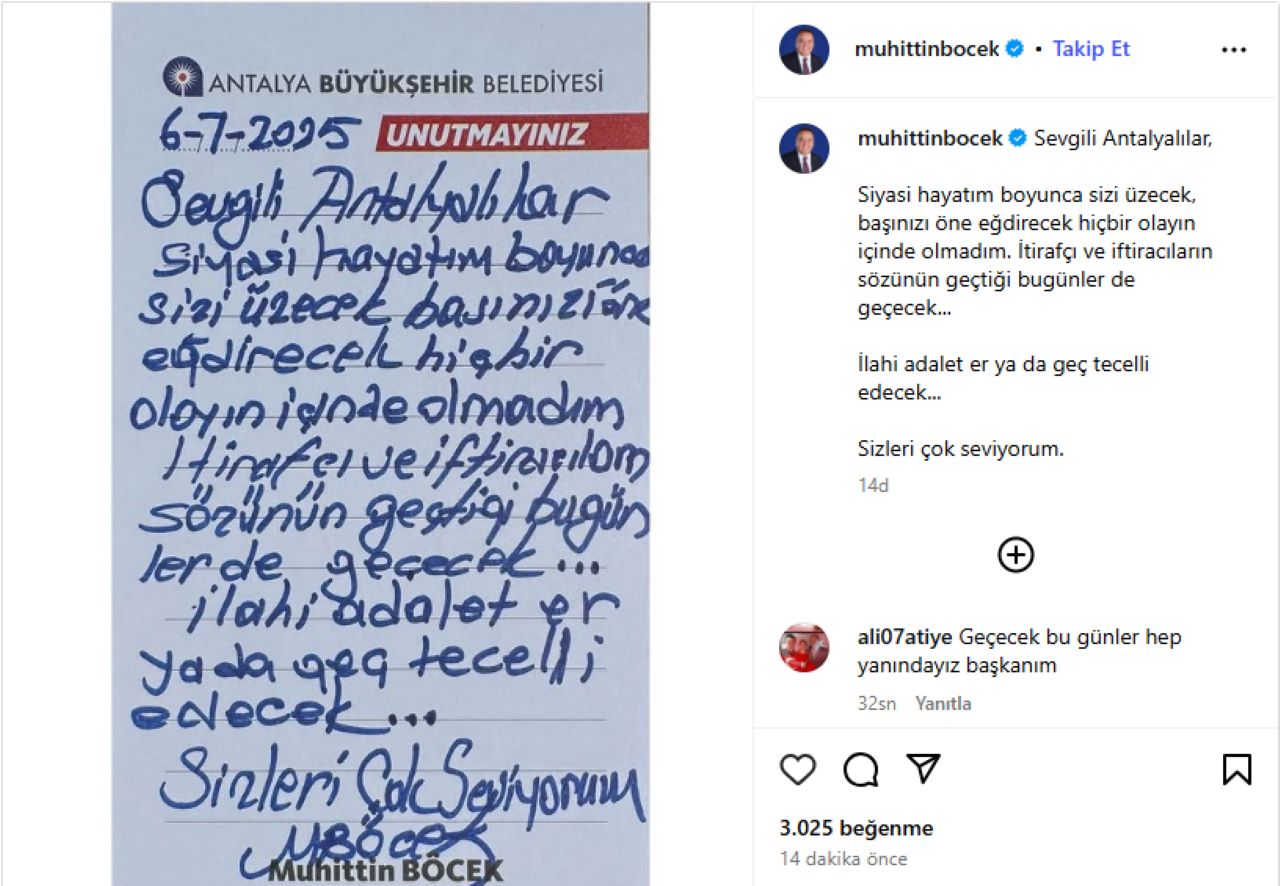 ANTALYA BÜYÜKŞEHİR BELEDİYESİ
6-7-2025 UNUTMAYINIZ
Sevgili Antalyalılar
siyasi hayatım boyunca
sizi üzecek başınızı öne
eğdirecek hiçbir
olayın içinde olmadım
İtirafçı ve iftiracıların
sözünün geçtiği bugün
lerde geçecek...
ilahi adalet er
yada geç tecelli
edecek...
Sizleri Çok Seviyorum
MBöcek
Muhittin BÖCEK
muhittinbocek • Takip Et
muhittinbocek Sevgili Antalyalılar,
Siyasi hayatım boyunca sizi üzecek,
başınızı öne eğdirecek hiçbir olayın
içinde olmadım. İtirafçı ve iftiracıların
sözünün geçtiği bugünler de
geçecek...
İlahi adalet er ya da geç tecelli
edecek...
Sizleri çok seviyorum.
14d
ali07atiye Geçecek bu günler hep
yanındayız başkanım
32sn Yanıtla
3.025 beğenme
14 dakika önce